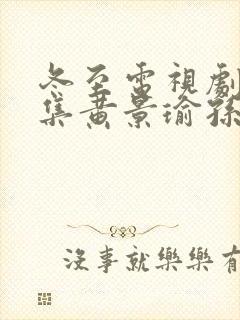 冬至電視劇
集黄景瑜孫
沒事就樂樂有